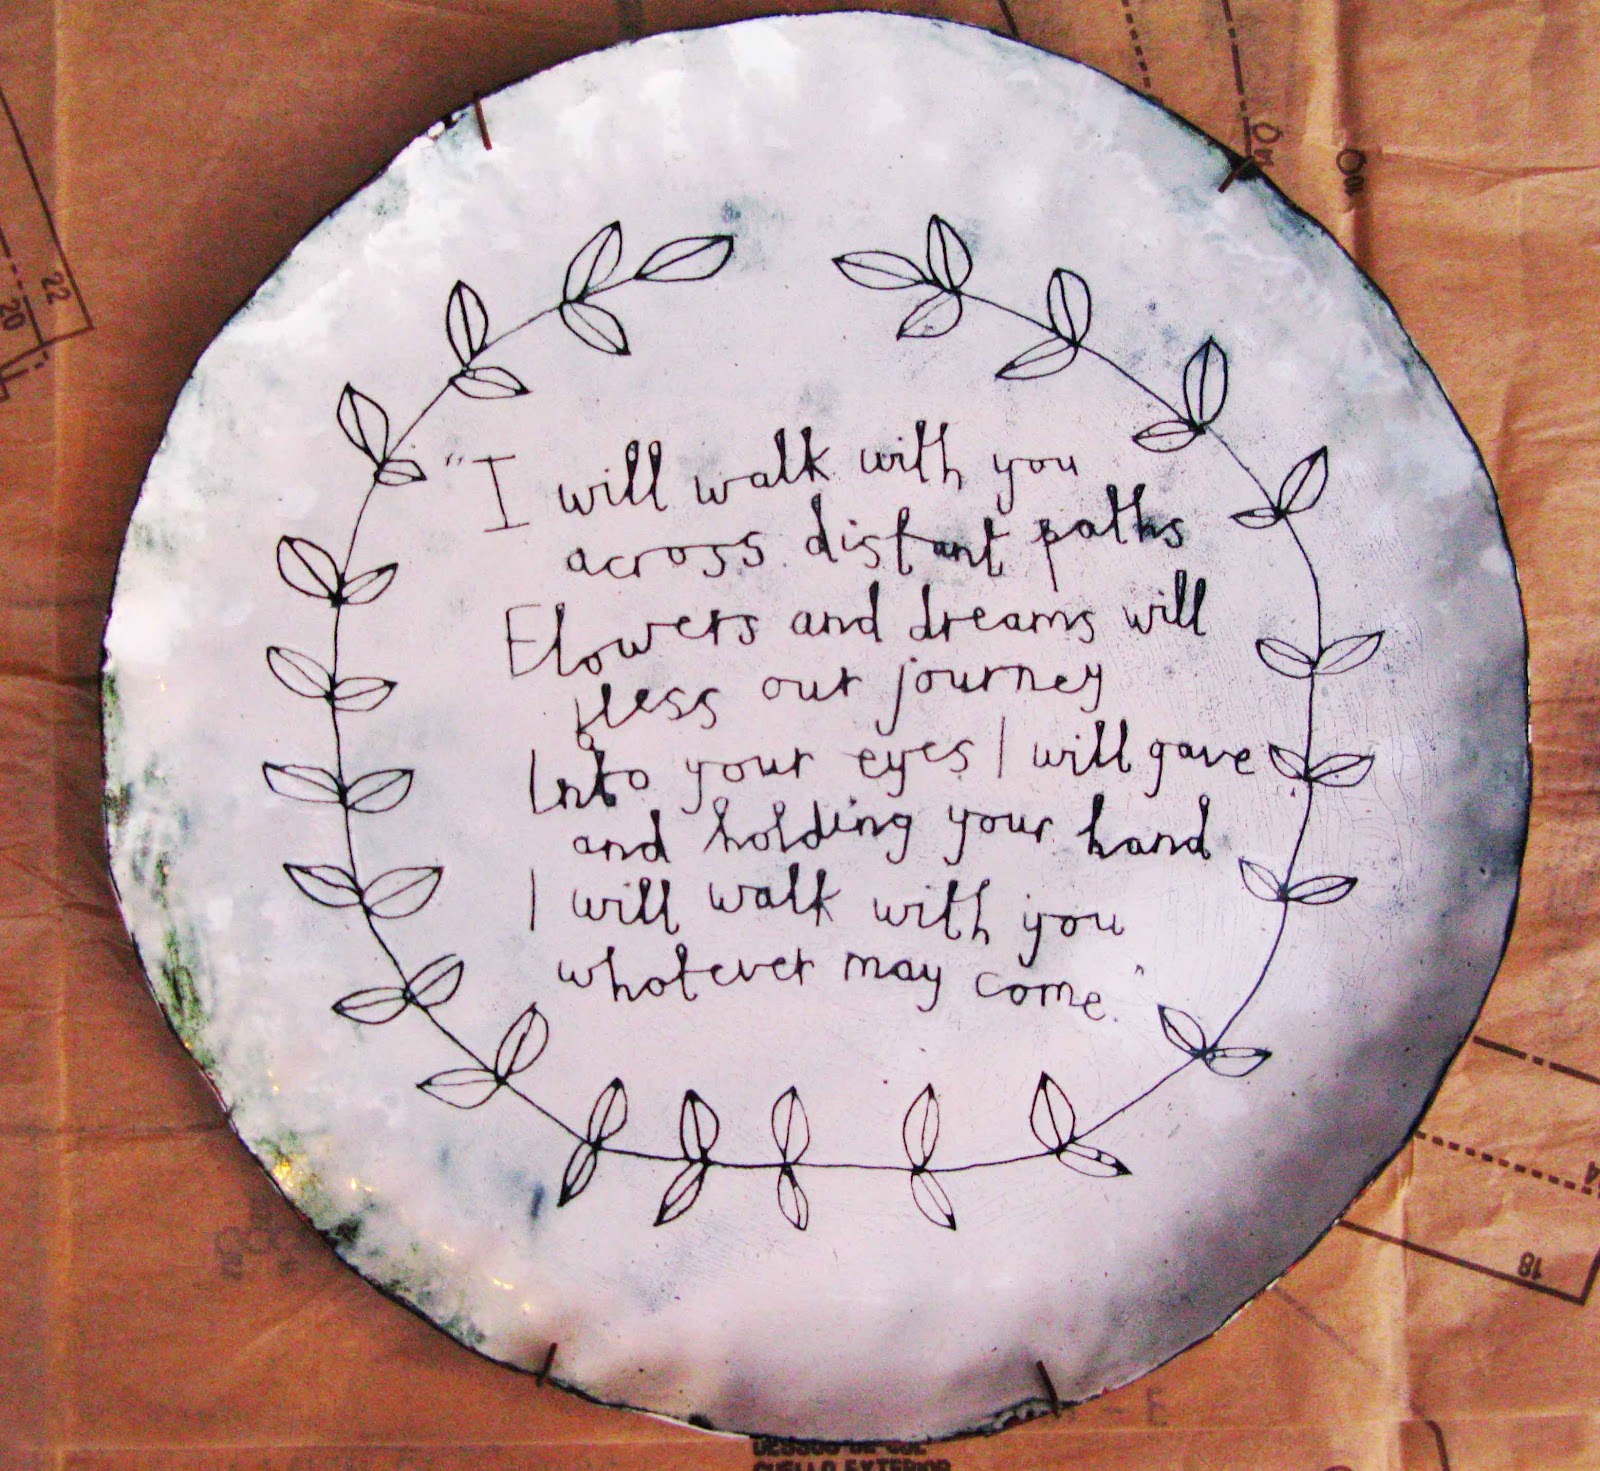 "I will walk with you
across distant paths
Flowers and dreams will
bless our journey
Into your eyes I will gave
and holding your hand
I will walk with you
whatever may come."
22
20
18
DESSOUS DE COL
CUELLO EXTERIOR